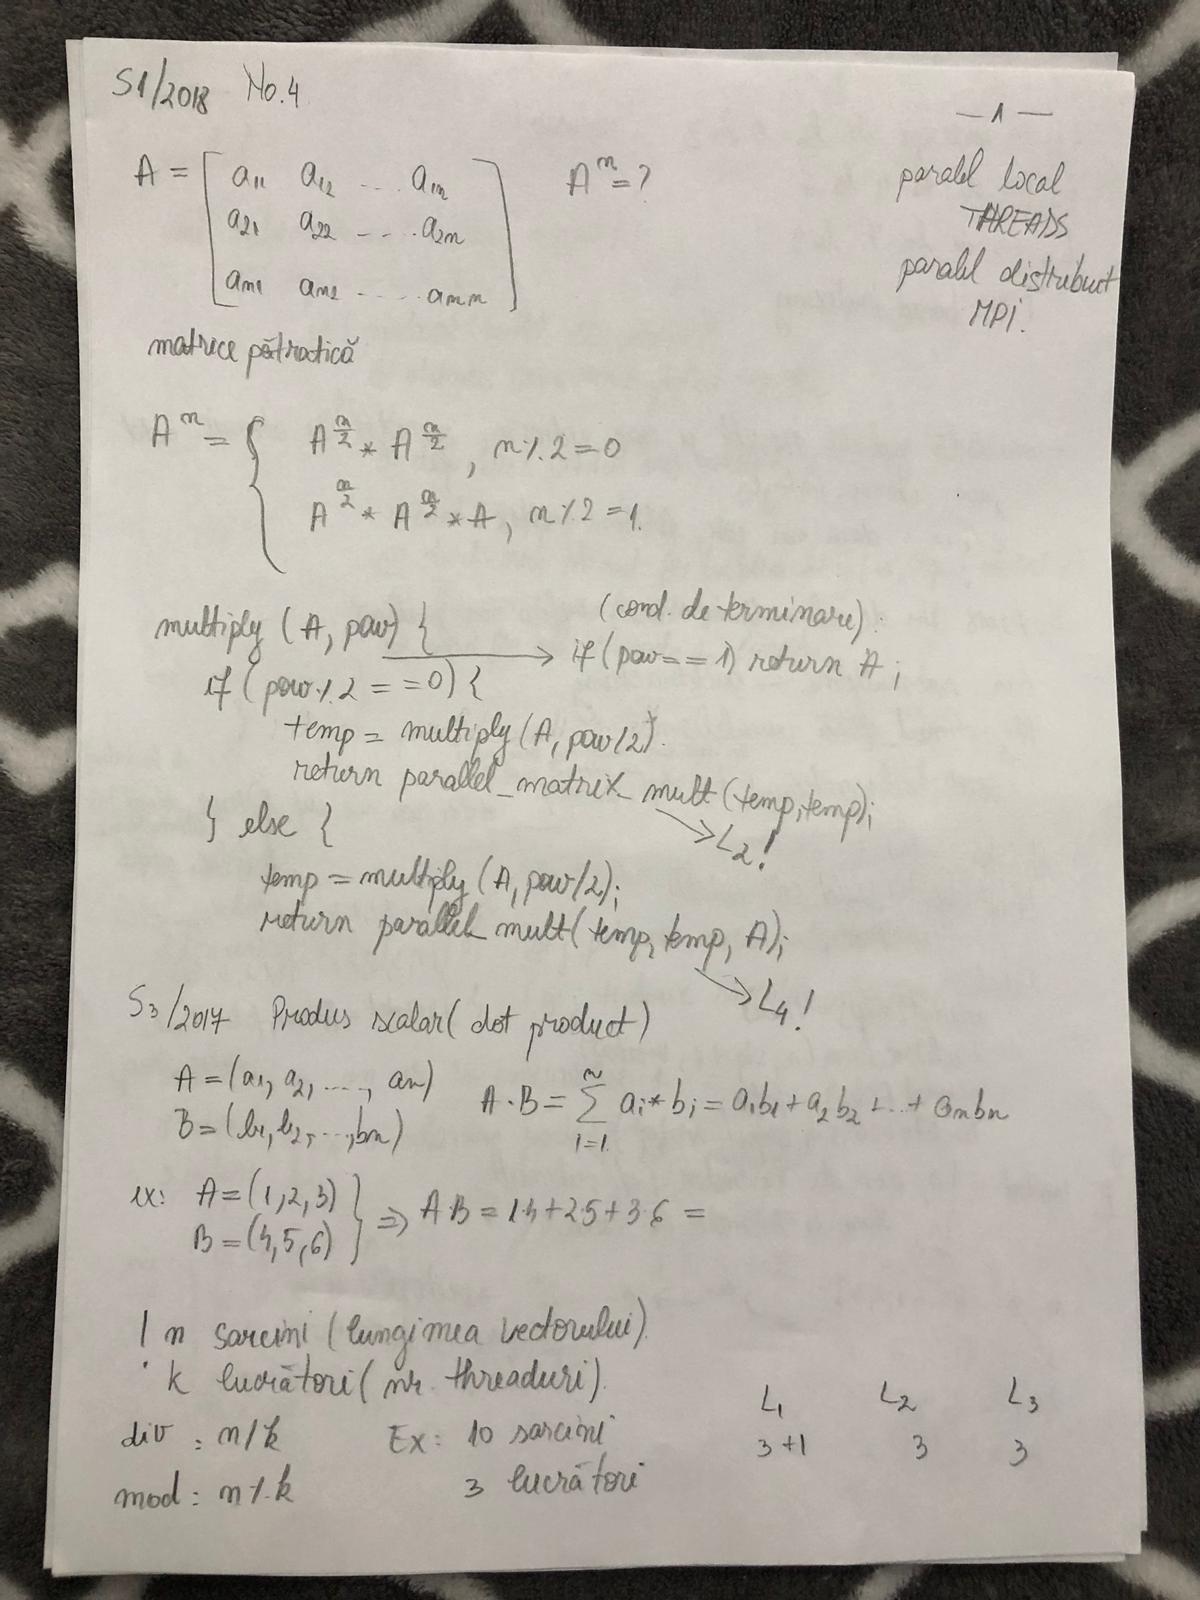 S1/2018 No.4
— 1 —
A = [ a11 a12 ... a1n
a21 a22 ... a2n
an1 an2 ... ann ]
A^n = ?
paralel local
THREADS
paralel distribuit
MPI.
matrice pătratică
A^n = { A^(n/2) * A^(n/2), n % 2 = 0
A^(n/2) * A^(n/2) * A, n % 2 = 1.
multiply (A, pow) { → (cond. de terminare):
if (pow == 1) return A;
if (pow % 2 == 0) {
temp = multiply (A, pow/2);
return parallel_matrix_mult (temp, temp);
→ L2!
} else {
temp = multiply (A, pow/2);
return parallel_mult (temp, temp, A);
→ L4!
S3/2017 Produs scalar (dot product)
A = (a1, a2, ..., an)
B = (b1, b2, ..., bn)
A·B = Σ i=1 n ai * bi = a1b1 + a2b2 + ... + anbn
ex: A = (1, 2, 3)
B = (4, 5, 6)
} ⇒ A·B = 1·4 + 2·5 + 3·6 =
! n sarcini (lungimea vectorului)
k lucrători (nr. threaduri).
div : n/k
mod : n % k
Ex: 10 sarcini
3 lucrători
L1 L2 L3
3+1 3 3